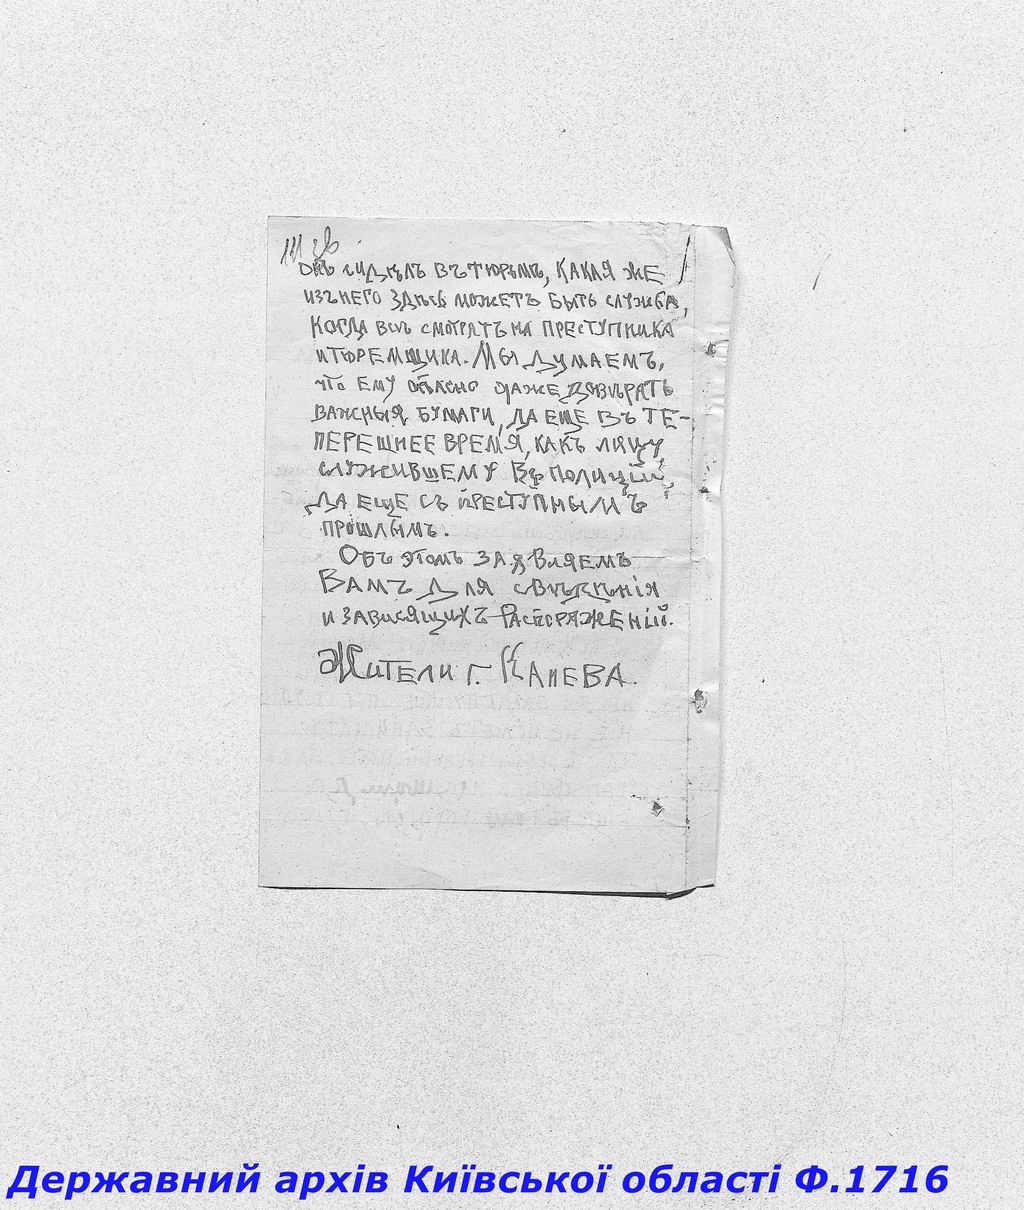 111 зв.
онъ сидѣлъ въ тюрьмѣ, какая же
изъ него здѣсь можетъ быть служба,
когда всѣ смотрятъ на преступника
и тюремщика. Мы думаемъ,
что ему опасно даже довѣрять
важныя бумаги, да еще въ те-
перешнее время, какъ лицу
служившему въ полиціи,
да еще съ преступнымъ
прошлымъ.
Объ этомъ заявляемъ
Вамъ для свѣдѣнія
и зависящихъ распоряженій.
Жители г. Канева.
Державний архів Київської області Ф.1716